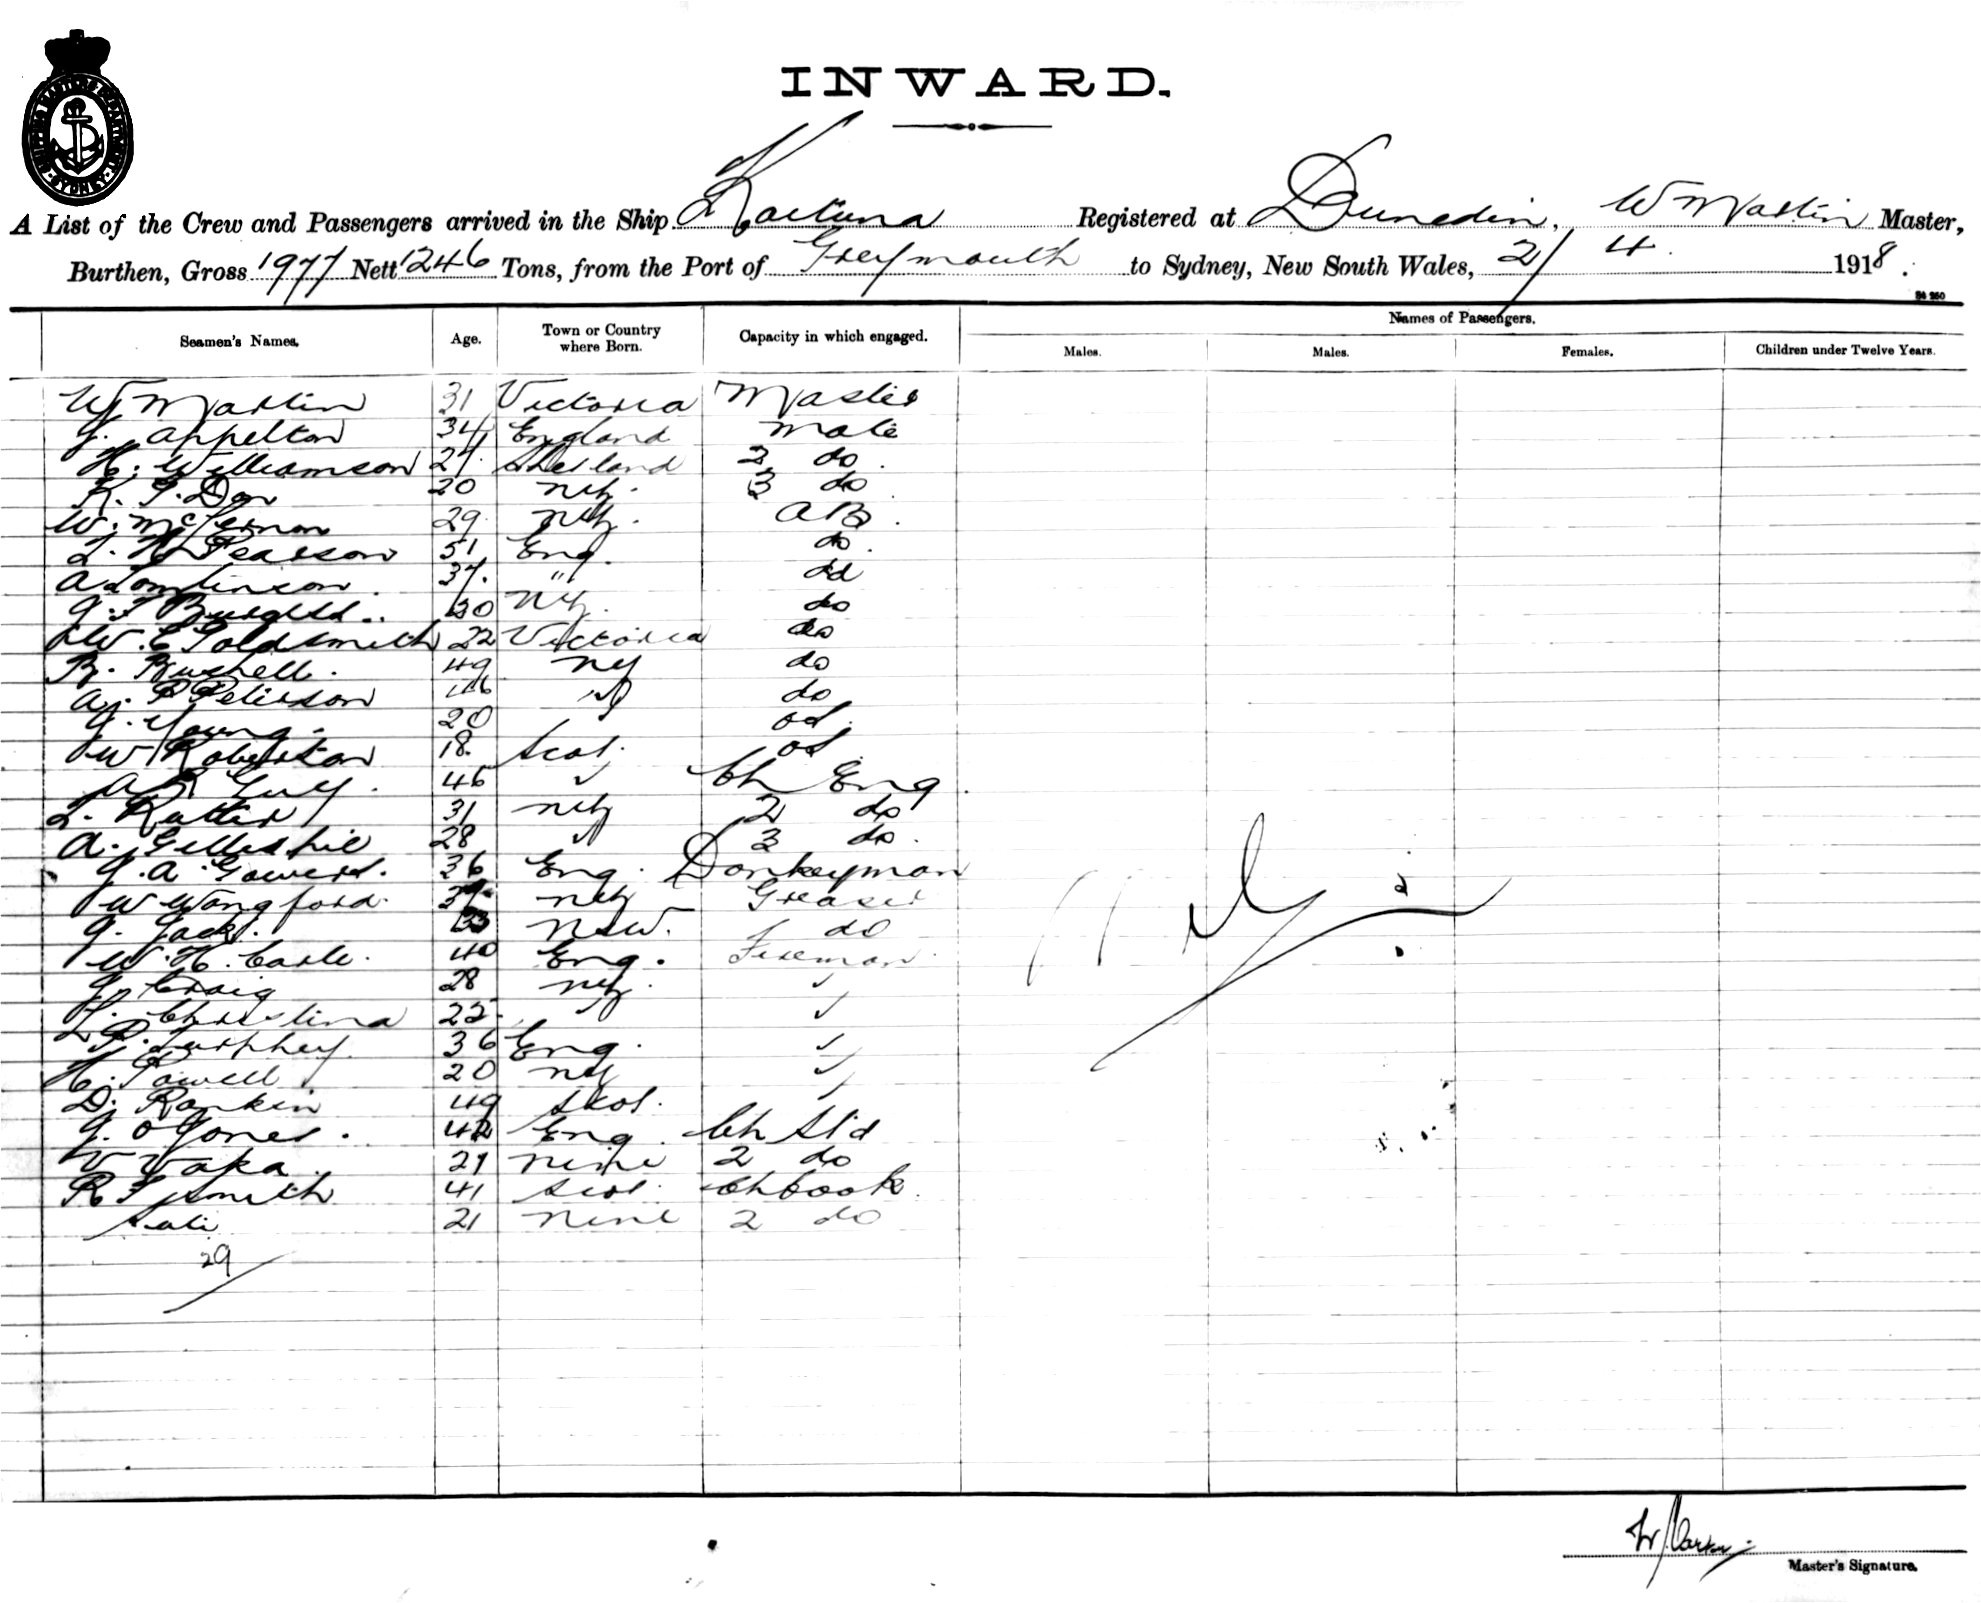 SHIPPING MASTERS DEPARTMENT
SYDNEY
INWARD.
A List of the Crew and Passengers arrived in the Ship Kaituna Registered at Dunedin, W Martin Master,
Burthen, Gross 1977 Nett 1246 Tons, from the Port of Greymouth to Sydney, New South Wales, 2/4 1918.
Seamen's Names. Age. Town or Country where Born. Capacity in which engaged. Names of Passengers.
Males. Males. Females. Children under Twelve Years.
W Martin 31 Victoria Master
J. Appelton 34 England Mate
H. Williamson 27 Shetland 2 do.
K. G. Don 20 NZ. 3 do
W. McTernan 29 NZ. AB.
L. H Pearson 51 Eng. do.
A Tomlinson. 37. " do
20 NZ. do
W. C Goldsmith 22 Victoria do
B. Bushell. 49 NZ do
A. P Peterson 46 do
J. Young. 20 od.
W Robertson 18. Scot. od
A Guy. 46 ✓ Ch Eng.
L. Rutter 31 NZ 2 do
A. Gillespie 28 ✓ 3 do.
J. A. Gowers. 36 Eng. Donkeyman
W Wangford. NZ Greaser
J. Jack. 33 NSW. do
W. H. Carle. 40 Eng. Fireman
J. Craig 28 NZ. ✓
L. Christina 22 ✓ ✓
P. Murphy. 36 Eng. ✓
H. Powell 20 NZ ✓
D. Rankin 49 Scot. ✓
J. O Jones. 42 Eng. Ch Std
V Vaka. 21 Niue 2 do
R. F Smith 41 Scot. Ch Cook.
21 Niue 2 do
29
Nil
Master's Signature.